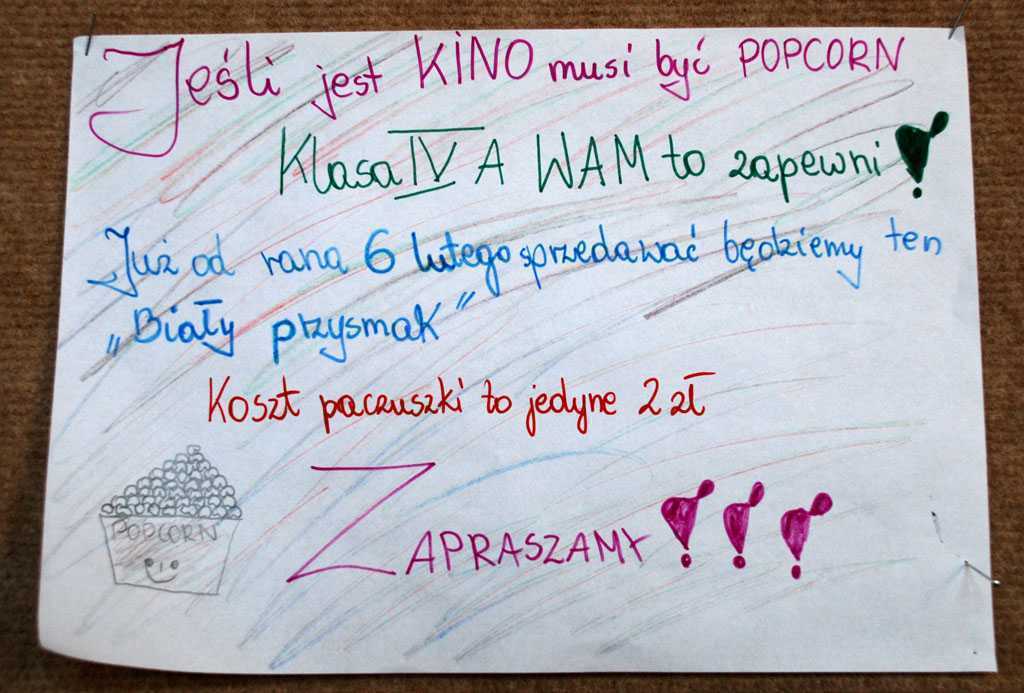 Jeśli jest KINO musi być POPCORN
Klasa IV A WAM to zapewni!
Już od rana 6 lutego sprzedawać będziemy ten
„Biały przysmak”
Koszt paczuszki to jedyne 2 zł
POPCORN
ZAPRASZAMY!!!